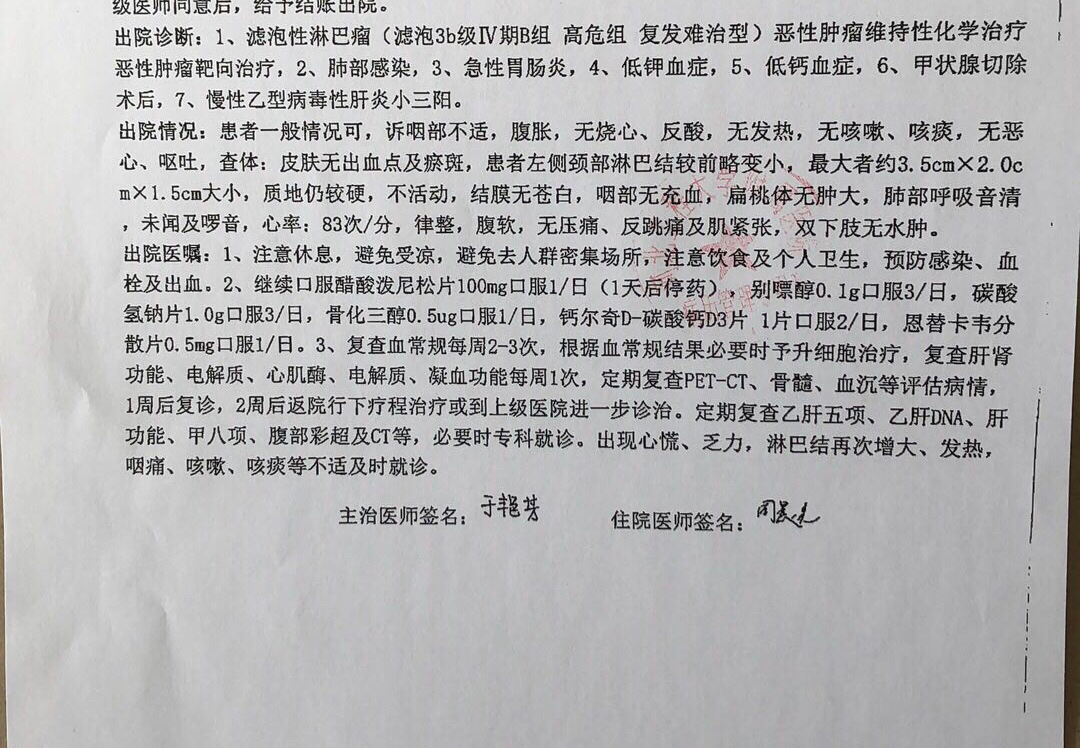 级医师同意后，给予结账出院。
出院诊断：1、滤泡性淋巴瘤（滤泡3b级Ⅳ期B组 高危组 复发难治型）恶性肿瘤维持性化学治疗
恶性肿瘤靶向治疗，2、肺部感染，3、急性胃肠炎，4、低钾血症，5、低钙血症，6、甲状腺切除
术后，7、慢性乙型病毒性肝炎小三阳。
出院情况：患者一般情况可，诉咽部不适，腹胀，无烧心、反酸，无发热，无咳嗽、咳痰，无恶
心、呕吐，查体：皮肤无出血点及瘀斑，患者左侧颈部淋巴结较前略变小，最大者约3.5cm×2.0c
m×1.5cm大小，质地仍较硬，不活动，结膜无苍白，咽部无充血，扁桃体无肿大，肺部呼吸音清
，未闻及啰音，心率：83次/分，律整，腹软，无压痛、反跳痛及肌紧张，双下肢无水肿。
出院医嘱：1、注意休息，避免受凉，避免去人群密集场所，注意饮食及个人卫生，预防感染、血
栓及出血。2、继续口服醋酸泼尼松片100mg口服1/日（1天后停药），别嘌醇0.1g口服3/日，碳酸
氢钠片1.0g口服3/日，骨化三醇0.5ug口服1/日，钙尔奇D-碳酸钙D3片 1片口服2/日，恩替卡韦分
散片0.5mg口服1/日。3、复查血常规每周2-3次，根据血常规结果必要时予升细胞治疗，复查肝肾
功能、电解质、心肌酶、电解质、凝血功能每周1次，定期复查PET-CT、骨髓、血沉等评估病情，
1周后复诊，2周后返院行下疗程治疗或到上级医院进一步诊治。定期复查乙肝五项、乙肝DNA、肝
功能、甲八项、腹部彩超及CT等，必要时专科就诊。出现心慌、乏力，淋巴结再次增大、发热，
咽痛、咳嗽、咳痰等不适及时就诊。
主治医师签名：于艳芳 住院医师签名：